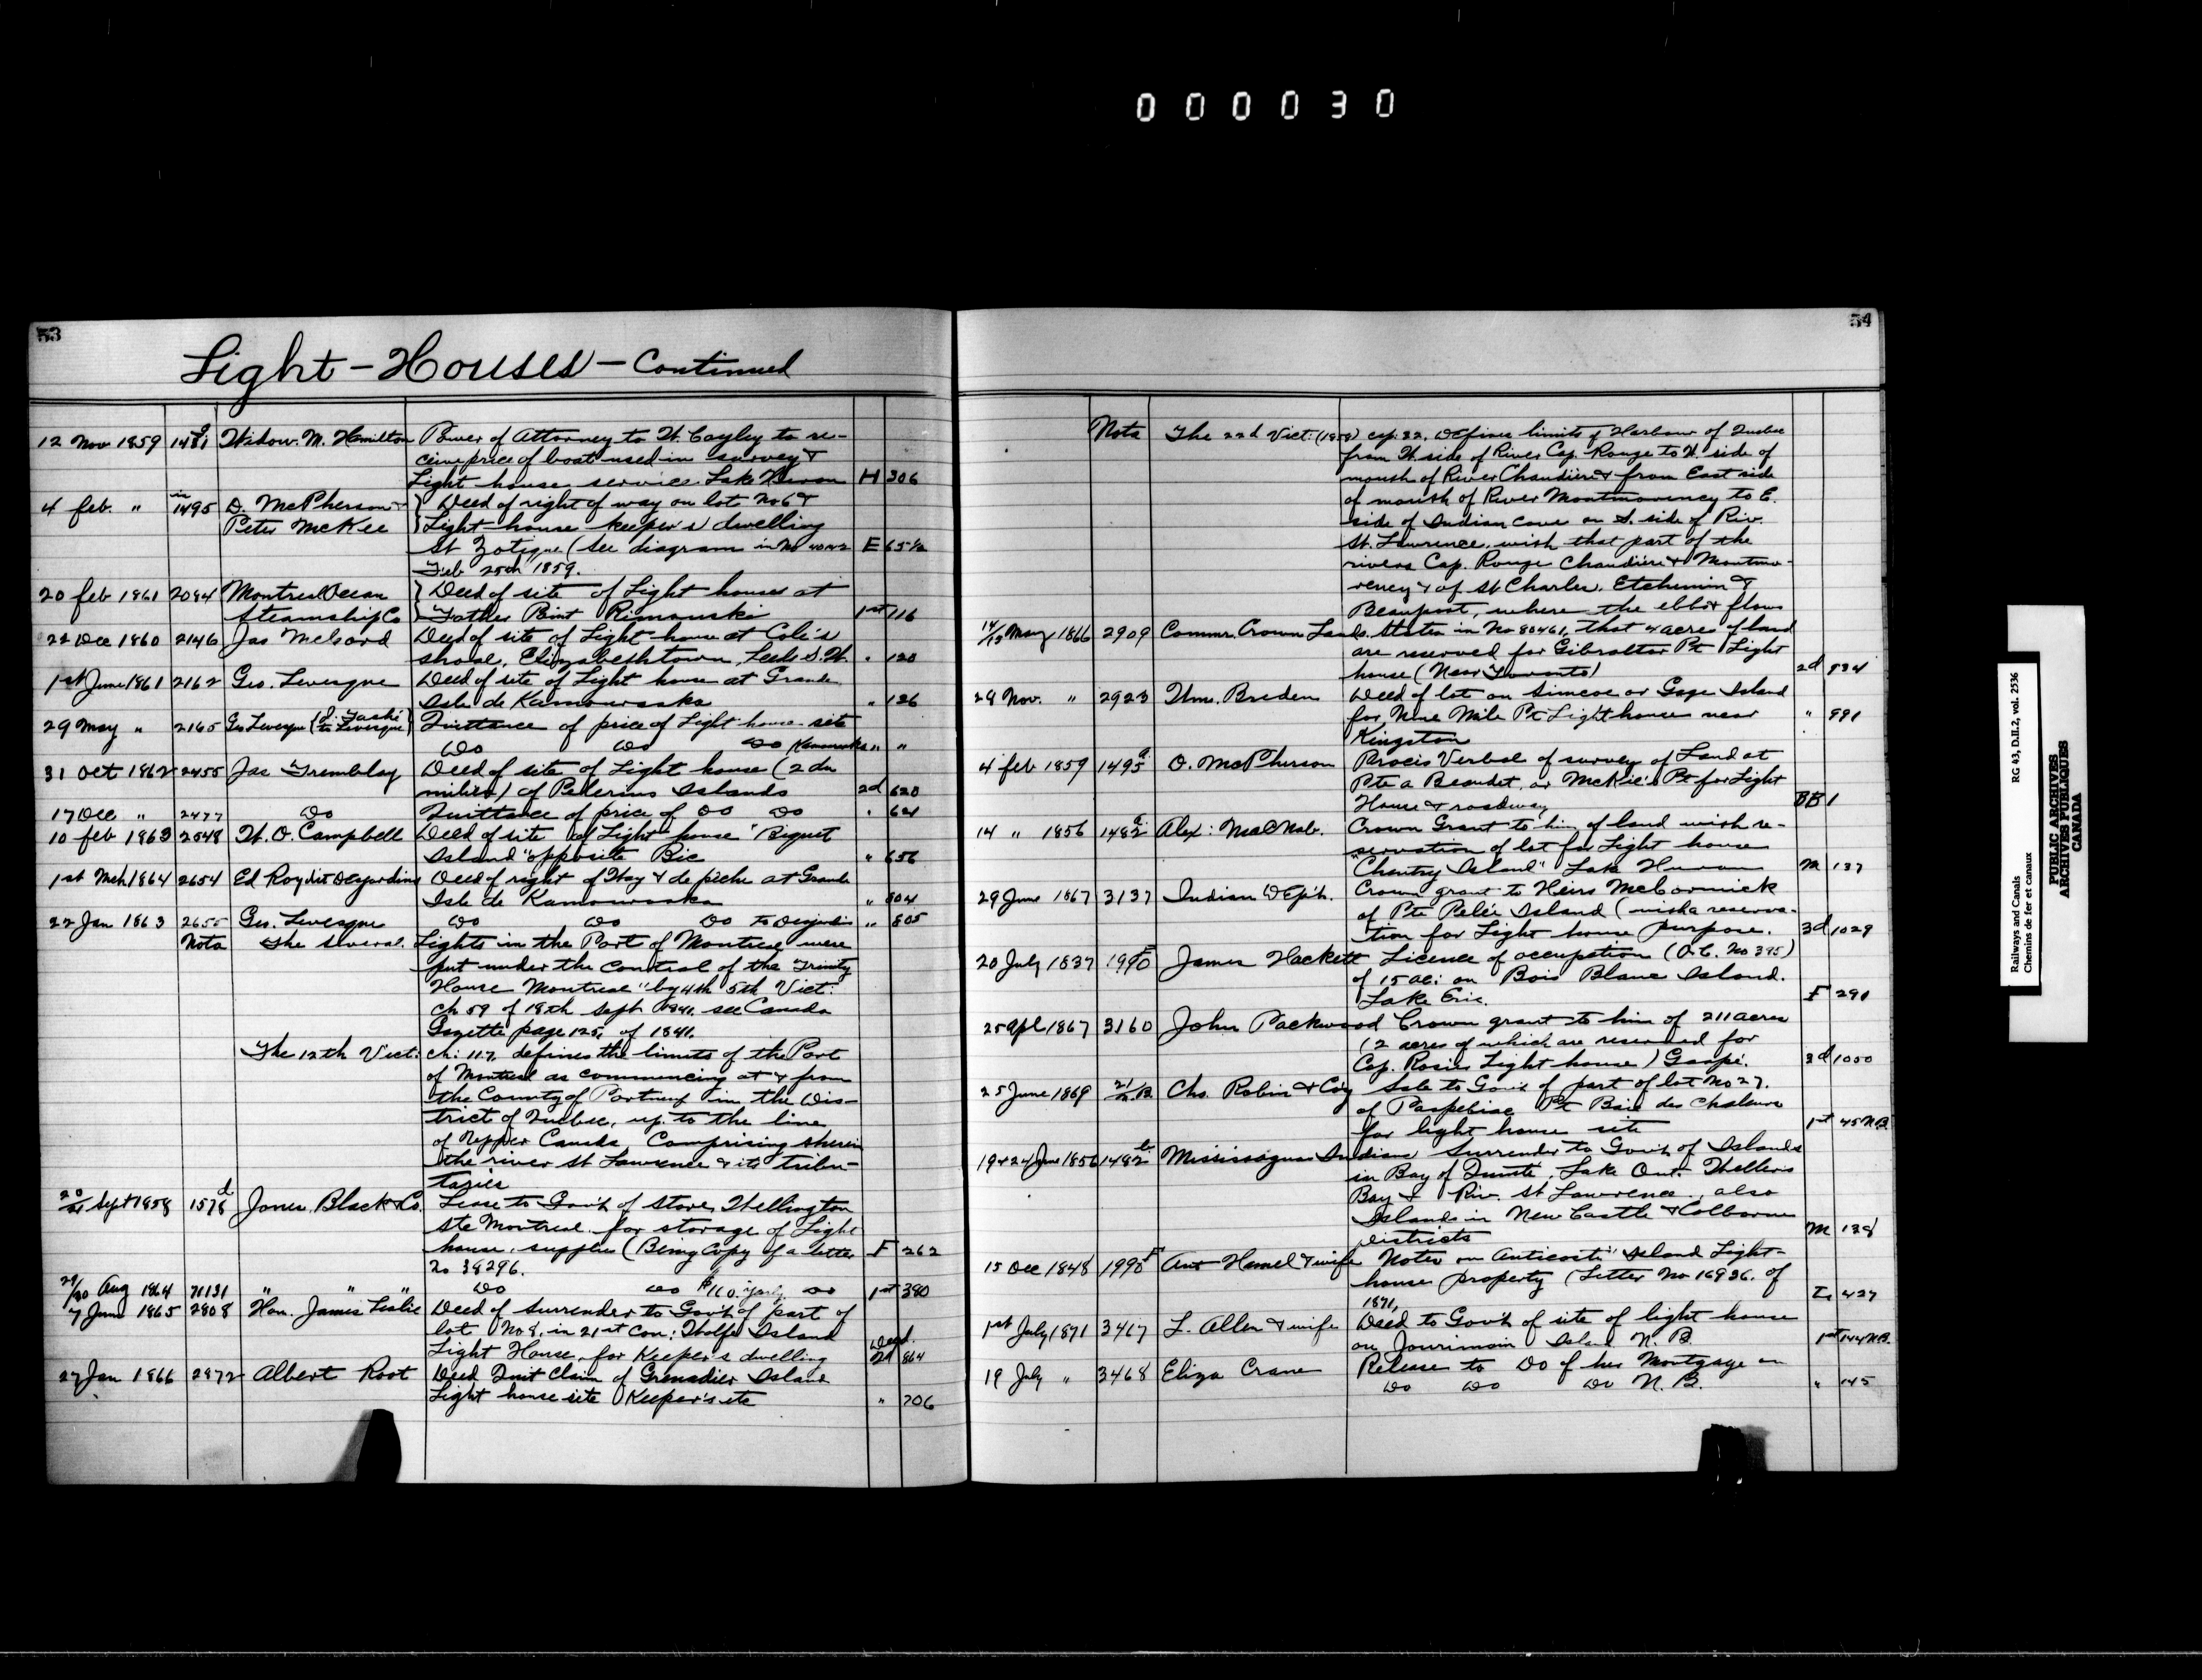 000030
53
Light-Houses-Continued
12 Nov 1859 1481 Widow. M. Hamilton Power of Attorney to W. Cayley to re-
ceive price of boat used in survey &
Light house service. Lake Huron H 306
4 feb. " in 1495 D. McPherson & } Deed of right of way on lot No 6 &
Peter McKee } Light-house keeper's dwelling
St Zotique (See diagram in No 40142 E 65½
Feb 25th 1859.
20 feb 1861 2084 Montreal Ocean } Deed of site of Light houses at
Steamship Co } Father Point Rimouski 1st 116
22 Dec 1860 2146 Jas McCord Deed of site of Light-house at Cole's
shoal, Elizabethtown, Leeds S. W. " 120
1st June 1861 2162 Geo. Levesque Deed of site of Light house at Grande
Isle de Kamouraska " 126
29 May " 2165 Geo Levesque (J. Taché to Levesque) Quittance of price of Light house site
Do Do Do Kamouraska " "
31 Oct 1862 2455 Jas Tremblay Deed of site of Light house (2 du
milieu) of Pelerins Islands 2d 620
17 Dec " 2477 Do Quittance of price of Do Do " 621
10 feb 1863 2548 W. D. Campbell Deed of site of Light house "Biquet
Island" opposite Bic " 656
1st Mch 1864 2654 Ed Roy dit Desjardins Deed of right of Way & de pêche at Grande
Isle de Kamouraska " 804
22 Jan 1863 2655 Geo. Levesque Do Do Do to Desjardins " 805
Nota The several Lights in the Port of Montreal were
put under the control of the Trinity
House Montreal "by 4th 5th Vict:
ch 59 of 18th Sept 1841, see Canada
Gazette page 125, of 1841.
The 12th Vict: ch: 117, defines the limits of the Port
of Montreal as commencing at & from
the County of Portneuf in the Dis-
trict of Quebec, up to the line
of Upper Canada, Comprising therein
the river St Lawrence & its tribu-
taries
20/21 Sept 1858 1578 d Jones. Black & Co. Lease to Gov't of store, Wellington
Ste Montreal for storage of Light
house supplies (Being Copy of a letter F 262
No 38296.
29/30 Aug 1864 71131 " " " Do Do $160. yearly Do 1st 380
7 June 1865 2808 Hon. James Leslie Deed of surrender to Gov't of part of
lot No 8, in 21st Con: Wolfe Island
Light House, for Keeper's dwelling Deed. 2d 864
27 Jan 1866 2872 Albert Root Deed Quit Claim of Grenadier Island
Light house site Keeper's etc " 706
54
Nota The 22d Vict: (1858) cap: 32, defines limits of Harbour of Quebec
from W. side of River Cap. Rouge to W. side of
mouth of River Chaudière & from East side
of mouth of River Montmorency to E.
side of Indian cove on S. side of Riv.
St. Lawrence, with that part of the
rivers Cap. Rouge Chaudière & Montmo-
rency & of St Charles, Etchemin &
Beauport, where the ebb & flows
14/15 May 1866 2909 Commr. Crown Lands. States in No 80461, that 4 acres of land
are reserved for Gibraltar Pt Light
house (Near Toronto) 2d 934
28 Nov. " 2923 Wm. Breden Deed of lot on Simcoe or Gage Island
for, Nine Mile Pt Light houses near " 991
Kingston
4 feb 1859 1495 a D. McPherson Procès Verbal of survey of Land at
Pte a Beaudet, or McKie's Pt for Light
House & roadway BB 1
14 " 1856 1482 a Alex: MacNab. Crown Grant to him of land with re-
servation of lot for Light house
"Chantry Island" Lake Huron M 137
29 June 1867 3137 Indian Dep't. Crown grant to Heirs McCormick
of Pte Pelée Island (with a reserva-
tion for Light house purpose. 3d 1029
20 July 1837 1990 James Hackett Licence of occupation (O.C. No 395)
of 15 ac: on Bois Blanc Island.
Lake Erie. F 291
25 Apl 1867 3160 John Packwood Crown grant to him of 211 acres
(2 acres of which are reserved for
Cap. Rosier Light house) Gaspé. 3d 1050
25 June 1869 21/2.B. Chs. Robin & Coy Sale to Gov't of part of lot No 27.
of Paspebiac Pt Baie des Chaleurs
for light house site 1st 45 N.B.
19 & 24 June 1856 1482 b Mississagua Indians Surrender to Gov't of Islands
in Bay of Quinté, Lake Ont. Wellers
Bay & Riv. St Lawrence, also
Islands in New Castle & Colborne
Districts M 138
15 Dec 1848 1995 F Ant Hamel & wife Notes on Anticosti Island Light-
house property (Letter No 16936. of
1871, I 427
1st July 1871 3467 L. Allen & wife Deed to Gov't of site of light house
on Jourimain Island N. B. 1st 144 N.B.
19 July " 3468 Eliza Crane Release to Do of her Mortgage on
Do Do Do N. B. " 145
Railways and Canals RG 43, D.II.2, vol. 2536
Chemins de fer et canaux
PUBLIC ARCHIVES
ARCHIVES PUBLIQUES
CANADA